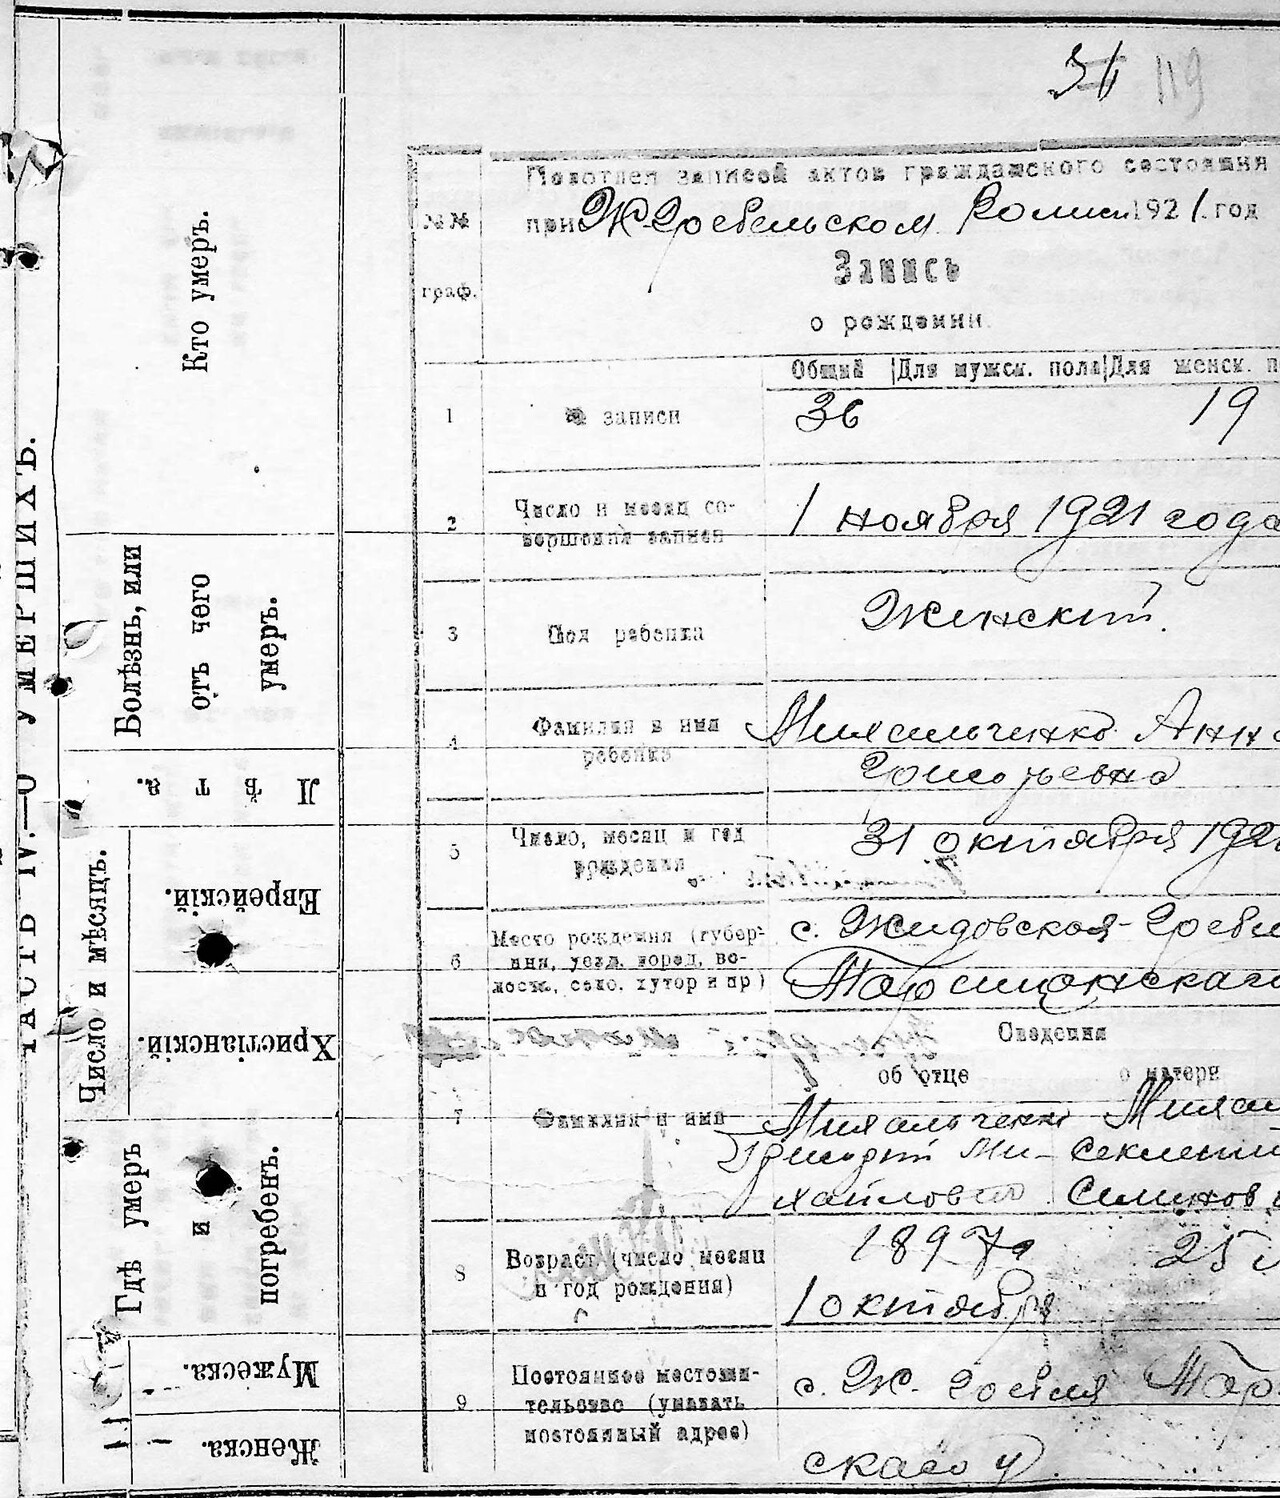 119
ЧАСТЬ IV.—О УМЕРШИХЪ.
Кто умеръ.
Болѣзнь, или
отъ чего
умеръ.
Лѣта.
Число и мѣсяцъ.
Еврейскій.
Христіанскій.
Гдѣ умеръ
и
погребенъ.
Мужеска.
Женска.
Подотдел записей актов гражданского состояния
при Ж-Гребельском Волисп. 1921. год
№№
граф.
Запись
о рождении.
Общий Для мужск. пола Для женск. п
1 № записи 36 19
2 Число и месяц со-
вершения записи
1 ноября 1921 года
3 Пол ребенка Женский.
4 Фамилия и имя
ребенка
Михальченко Анн
Григорьевна
5 Число, месяц и год
рождения
31 октября 192
6 Место рождения (губер-
ния, уезд, город, во-
лость, село, хутор и пр)
с. Жидовская-Гребл
Таращанскаго
Сведения
об отце о матери
7 Фамилия и имя
Михальченко
Григорий Ми-
хайлович
Михал
Секлетия
Семенов
8 Возраст (число месяц
и год рождения)
1897 г
1 октября
25 л
9 Постоянное местожи-
тельство (указать
постоянный адрес)
с. Ж. Гребля Тара
скаго у.